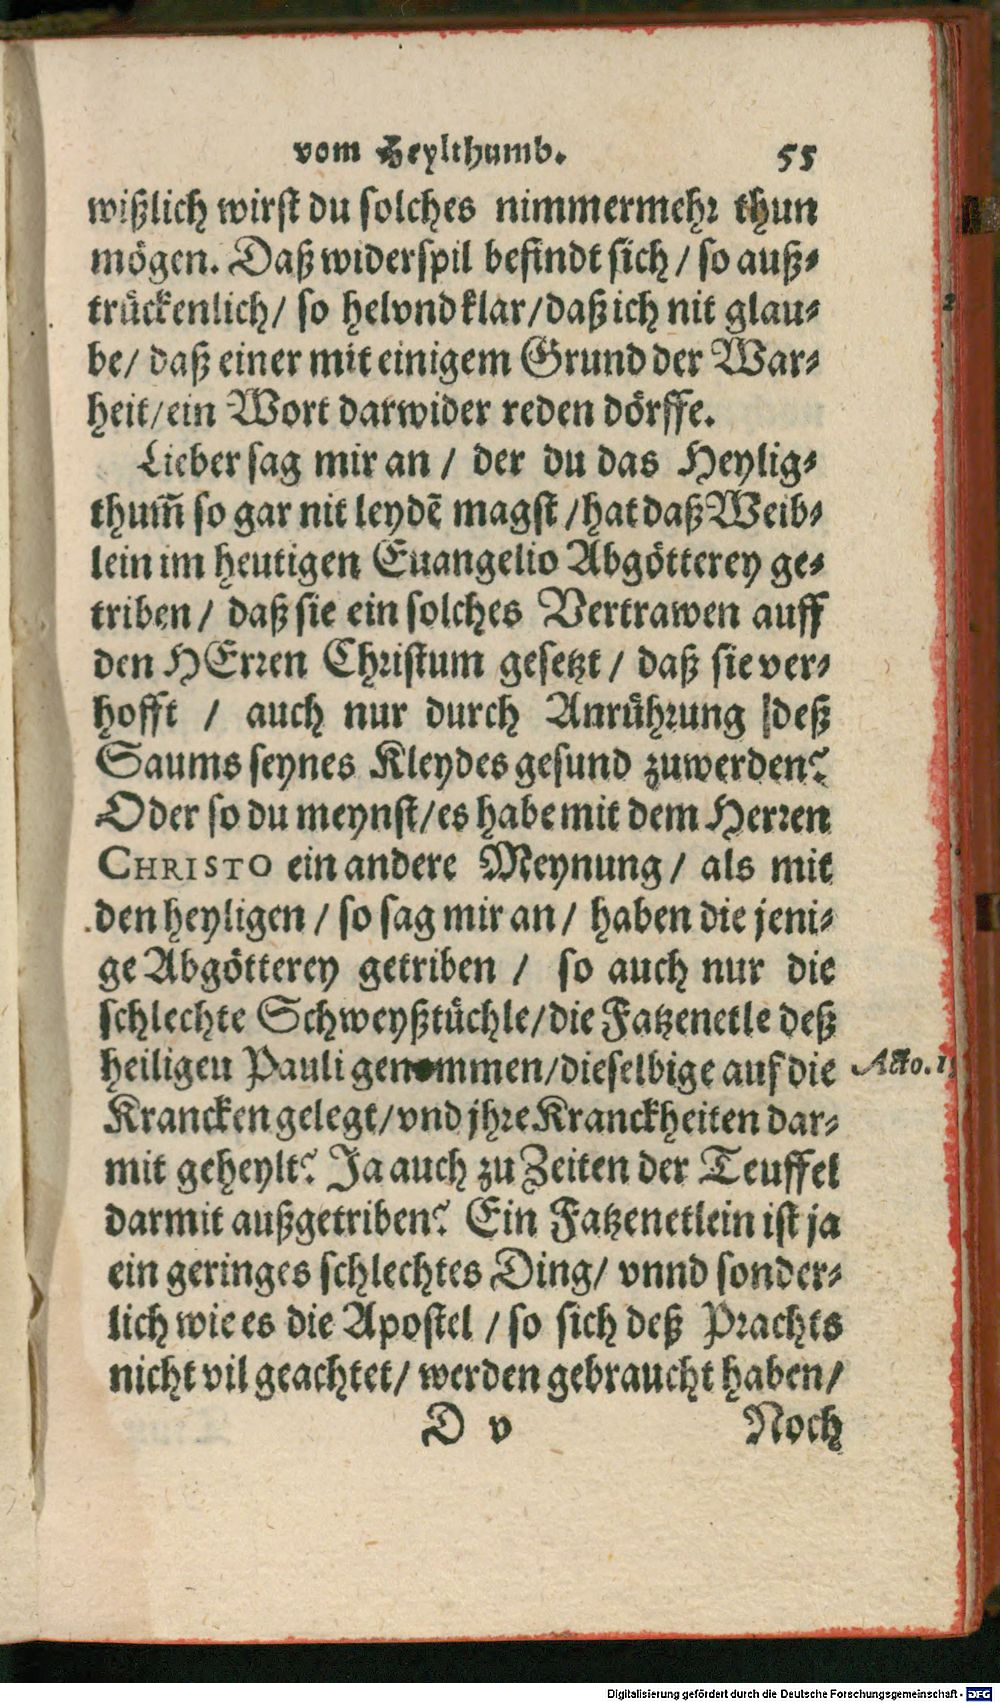 vom Heylthumb. 55
wißlich wirst du solches nimmermehr thun
mögen. Daß widerspil befindt sich / so auß-
trückenlich / so hel vnd klar / daß ich nit glau-
be / daß einer mit einigem Grund der War-
heit / ein Wort darwider reden dörffe.
Lieber sag mir an / der du das Heylig-
thum̃ so gar nit leydẽ magst / hat daß Weib-
lein im heutigen Euangelio Abgötterey ge-
triben / daß sie ein solches Vertrawen auff
den HErren Christum gesetzt / daß sie ver-
hofft / auch nur durch Anrührung deß
Saums seynes Kleydes gesund zuwerden?
Oder so du meynst / es habe mit dem Herren
CHRISTO ein andere Meynung / als mit
den heyligen / so sag mir an / haben die jeni-
ge Abgötterey getriben / so auch nur die
schlechte Schweyßtüchle / die Fatzenetle deß
heiligen Pauli genommen / dieselbige auf die
Krancken gelegt / vnd jhre Kranckheiten dar-
mit geheylt? Ja auch zu Zeiten der Teuffel
darmit außgetriben? Ein Fatzenetlein ist ja
ein geringes schlechtes Ding / vnnd sonder-
lich wie es die Apostel / so sich deß Prachts
nicht vil geachtet / werden gebraucht haben /
D v Noch
Acto.
Digitalisierung gefördert durch die Deutsche Forschungsgemeinschaft - DFG